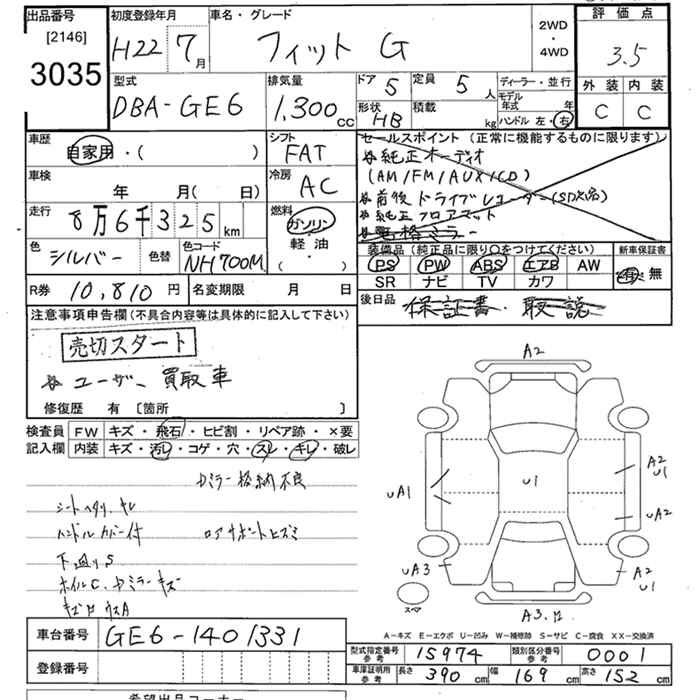 出品番号 [2146] 3035
初度登録年月 H22 7月
車名・グレード フィット G
2WD・4WD
評価点 3.5
外装 C 内装 C
型式 DBA-GE6
排気量 1,300cc
ドア 5
定員 5人
形状 HB
積載 kg
ディーラー・並行
モデル年式 年
ハンドル 左・右
車歴 自家用・( )
シフト FAT
車検 年 月( 日)
冷房 AC
走行 8万6千325km
燃料 ガソリン・軽油・( )
色 シルバー 色替
色コード NH700M
セールスポイント(正常に機能するものに限ります)
純正オーディオ
(AM/FM/AUX/CD)
前後ドライブレコーダー
純正フロアマット
格ミラー
装備品(純正品に限り○をつけてください)
PS PW ABS エアB AW
SR ナビ TV カワ
新車保証書 有・無
R券 10,810円
名変期限 月 日
後日品 保証書 取説
注意事項申告欄(不具合内容等は具体的に記入して下さい)
売切スタート
ユーザー買取車
修復歴 有 [箇所 ]
検査員記入欄
FW キズ・飛石・ヒビ割・リペア跡・×要
内装 キズ・汚レ・コゲ・穴・スレ・キレ・破レ
ミラー格納不良
シートヘタリ、キレ
ハンドルカバー付 ロアサポートヒズミ
下廻りS
ホイルC、ミラーキズ
A2
U1
UA1
A2
U1
UA2
UA3
A2
U1
スペア
A3.
A-キズ E-エクボ U-凹み W-補修跡 S-サビ C-腐食 XX-交換済
車台番号 GE6-1401331
登録番号
型式指定番号 参考 15974
類別区分番号 参考 0001
車庫証明用 参考 長さ 390cm 幅 169cm 高さ 152cm
希望出品コーナー